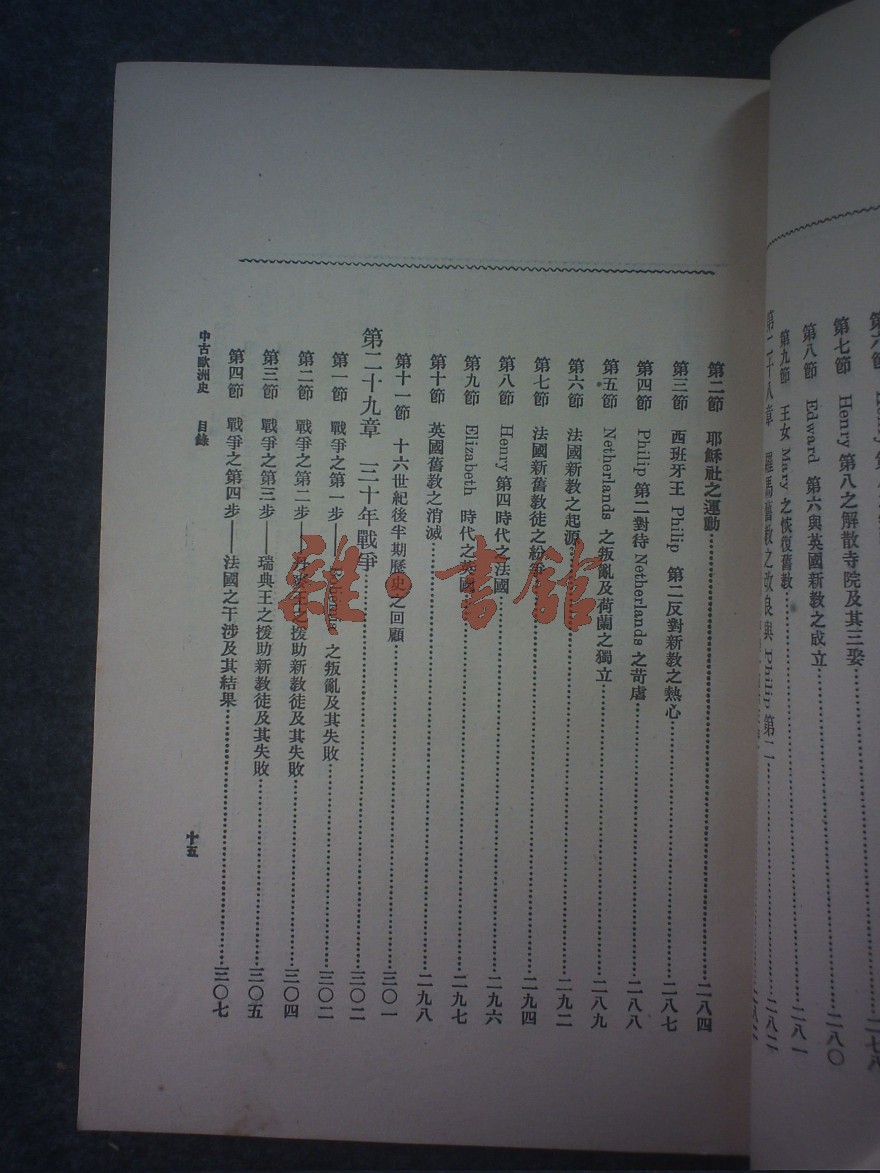 第七節 Henry 第八之解散寺院及其三娶 二八〇
第八節 Edward 第六與英國新教之成立 二八一
第九節 王女 Mary 之恢復舊教 二八二
第二節 耶穌社之運動 二八四
第三節 西班牙王 Philip 第二反對新教之熱心 二八七
第四節 Philip 第二對待 Netherlands 之苛虐 二八八
第五節 Netherlands 之叛亂及荷蘭之獨立 二八九
第六節 法國新教之起源 二九二
第七節 法國新舊教徒之紛爭 二九四
第八節 Henry 第四時代之法國 二九六
第九節 Elizabeth 時代之英國 二九七
第十節 英國舊教之消滅 二九八
第十一節 十六世紀後半期歷史之回顧 三〇一
第二十九章 三十年戰爭 三〇二
第一節 戰爭之第一步—— 之叛亂及其失敗 三〇二
第二節 戰爭之第二步—— 王之援助新教徒及其失敗 三〇四
第三節 戰爭之第三步——瑞典王之援助新教徒及其失敗 三〇五
第四節 戰爭之第四步——法國之干涉及其結果 三〇七
中古歐洲史 目錄
十五
雜·書館